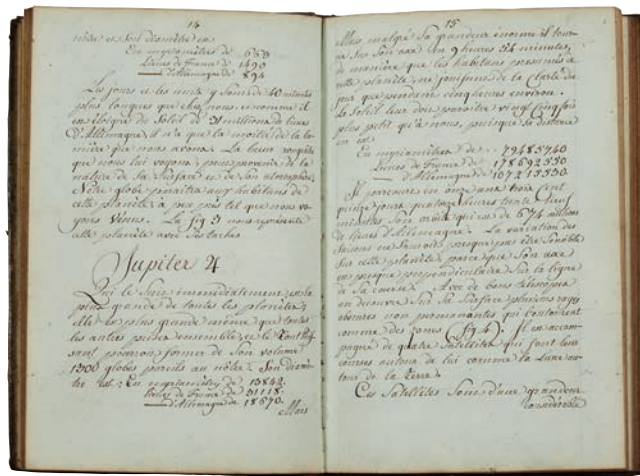 14
nôtre et Son diamêtre est
En myriamêtres de 663
Lieues de France de 1490
d'Allemagne de 894
Les jours et les nuits y Sont de 40 minutes
plus longues que chez nous, et comme il
est éloigné du Soleil de 31 millions de lieues
D'Allemagne, il n'a que la moitié de la lu-
mière que nous avons. La lueur rougeâtre
que nous lui voyons, peut provenir de la
nature de Sa Surface et de Son atmosphère.
Nôtre globe paraitra aux habitans de
cette planête à peu près tel que nous vo-
yons Vénus. La fig 3 nous représente
cette planête avec Ses taches
Jupiter ♃
Qui le Suit immédiatement, est la
plus grande de toutes les planêtes;
elle est plus grande même que toutes
les autres prises ensemble, et le
sauf pourroit former de Son volume
1300 globes pareils au nôtre. Son diamê-
tre est: En myriamêtres de 13842.
lieues de France de 31118.
d'Allemagne de 18670.
Mais
15
Mais malgré Sa grandeur énorme il tour-
ne Sur Son axe en 9 heures 56 minutes,
de manière que les habitans présumés à
cette planête, ne jouissent de la clarté du
jour que pendant cinq heures environ.
Le Soleil leur doit paroître vingt cinq fois
plus petit qu'à nous, puisque Sa distance
en est
En myriamêtres de 79485740
Lieues de France de 178692550
d'Allemagne de 107215530
Il parcourt en onze ans trois cent
quinze jours quatorze heures trente neuf
minutes Son orbite qui est de 674 millions
de lieues d'Allemagne. La variation des
Saisons ne Sauroit presque pas être Sensible
Sur cette planête, parce que Son axe
est presque perpendiculaire Sur la ligne
de Sa course. Avec de bons télescopes
on découvre Sur Sa Surface plusieurs raies
obscures non permanentes qui l'entourent
comme des zones (fig 4). Il est accom-
pagné de quatre Satellites qui font leur
course autour de lui comme la Lune au-
tour de la Terre.
Ces Satellites Sont d'une grandeur
considérable